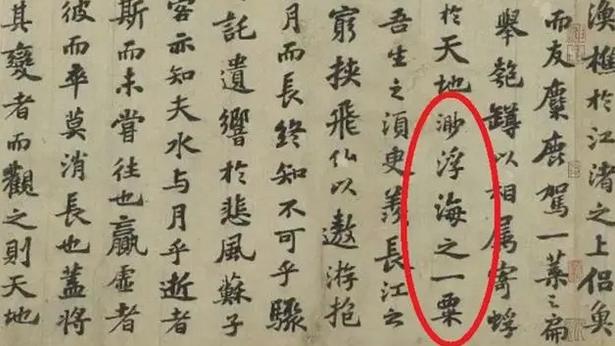 漁樵於江渚之上侣魚
而友麋鹿駕一葉之扁
舉匏罇以相属寄蜉
於天地渺浮海之一粟
吾生之須臾羡長江之
窮挾飛仙以遨游抱
月而長終知不可乎驟
託遺響於悲風蘇子
客亦知夫水与月乎逝者
斯而未嘗往也贏虚者
彼而卒莫消長也蓋将
其變者而觀之則天地